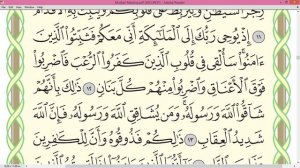 رِجْزَ ٱلشَّيْطَٰنِ وَلِيَرْبِطَ عَلَىٰ قُلُوبِكُمْ وَيُثَبِّتَ بِهِ ٱلْأَقْدَامَ
١١ إِذْ يُوحِى رَبُّكَ إِلَى ٱلْمَلَٰٓئِكَةِ أَنِّى مَعَكُمْ فَثَبِّتُوا۟ ٱلَّذِينَ
ءَامَنُوا۟ سَأُلْقِى فِى قُلُوبِ ٱلَّذِينَ كَفَرُوا۟ ٱلرُّعْبَ فَٱضْرِبُوا۟
فَوْقَ ٱلْأَعْنَاقِ وَٱضْرِبُوا۟ مِنْهُمْ كُلَّ بَنَانٍ ١٢ ذَٰلِكَ بِأَنَّهُمْ
شَآقُّوا۟ ٱللَّهَ وَرَسُولَهُۥ وَمَن يُشَاقِقِ ٱللَّهَ وَرَسُولَهُۥ فَإِنَّ ٱللَّهَ
شَدِيدُ ٱلْعِقَابِ ١٣ ذَٰلِكُمْ فَذُوقُوهُ وَأَنَّ لِلْكَٰفِرِينَ